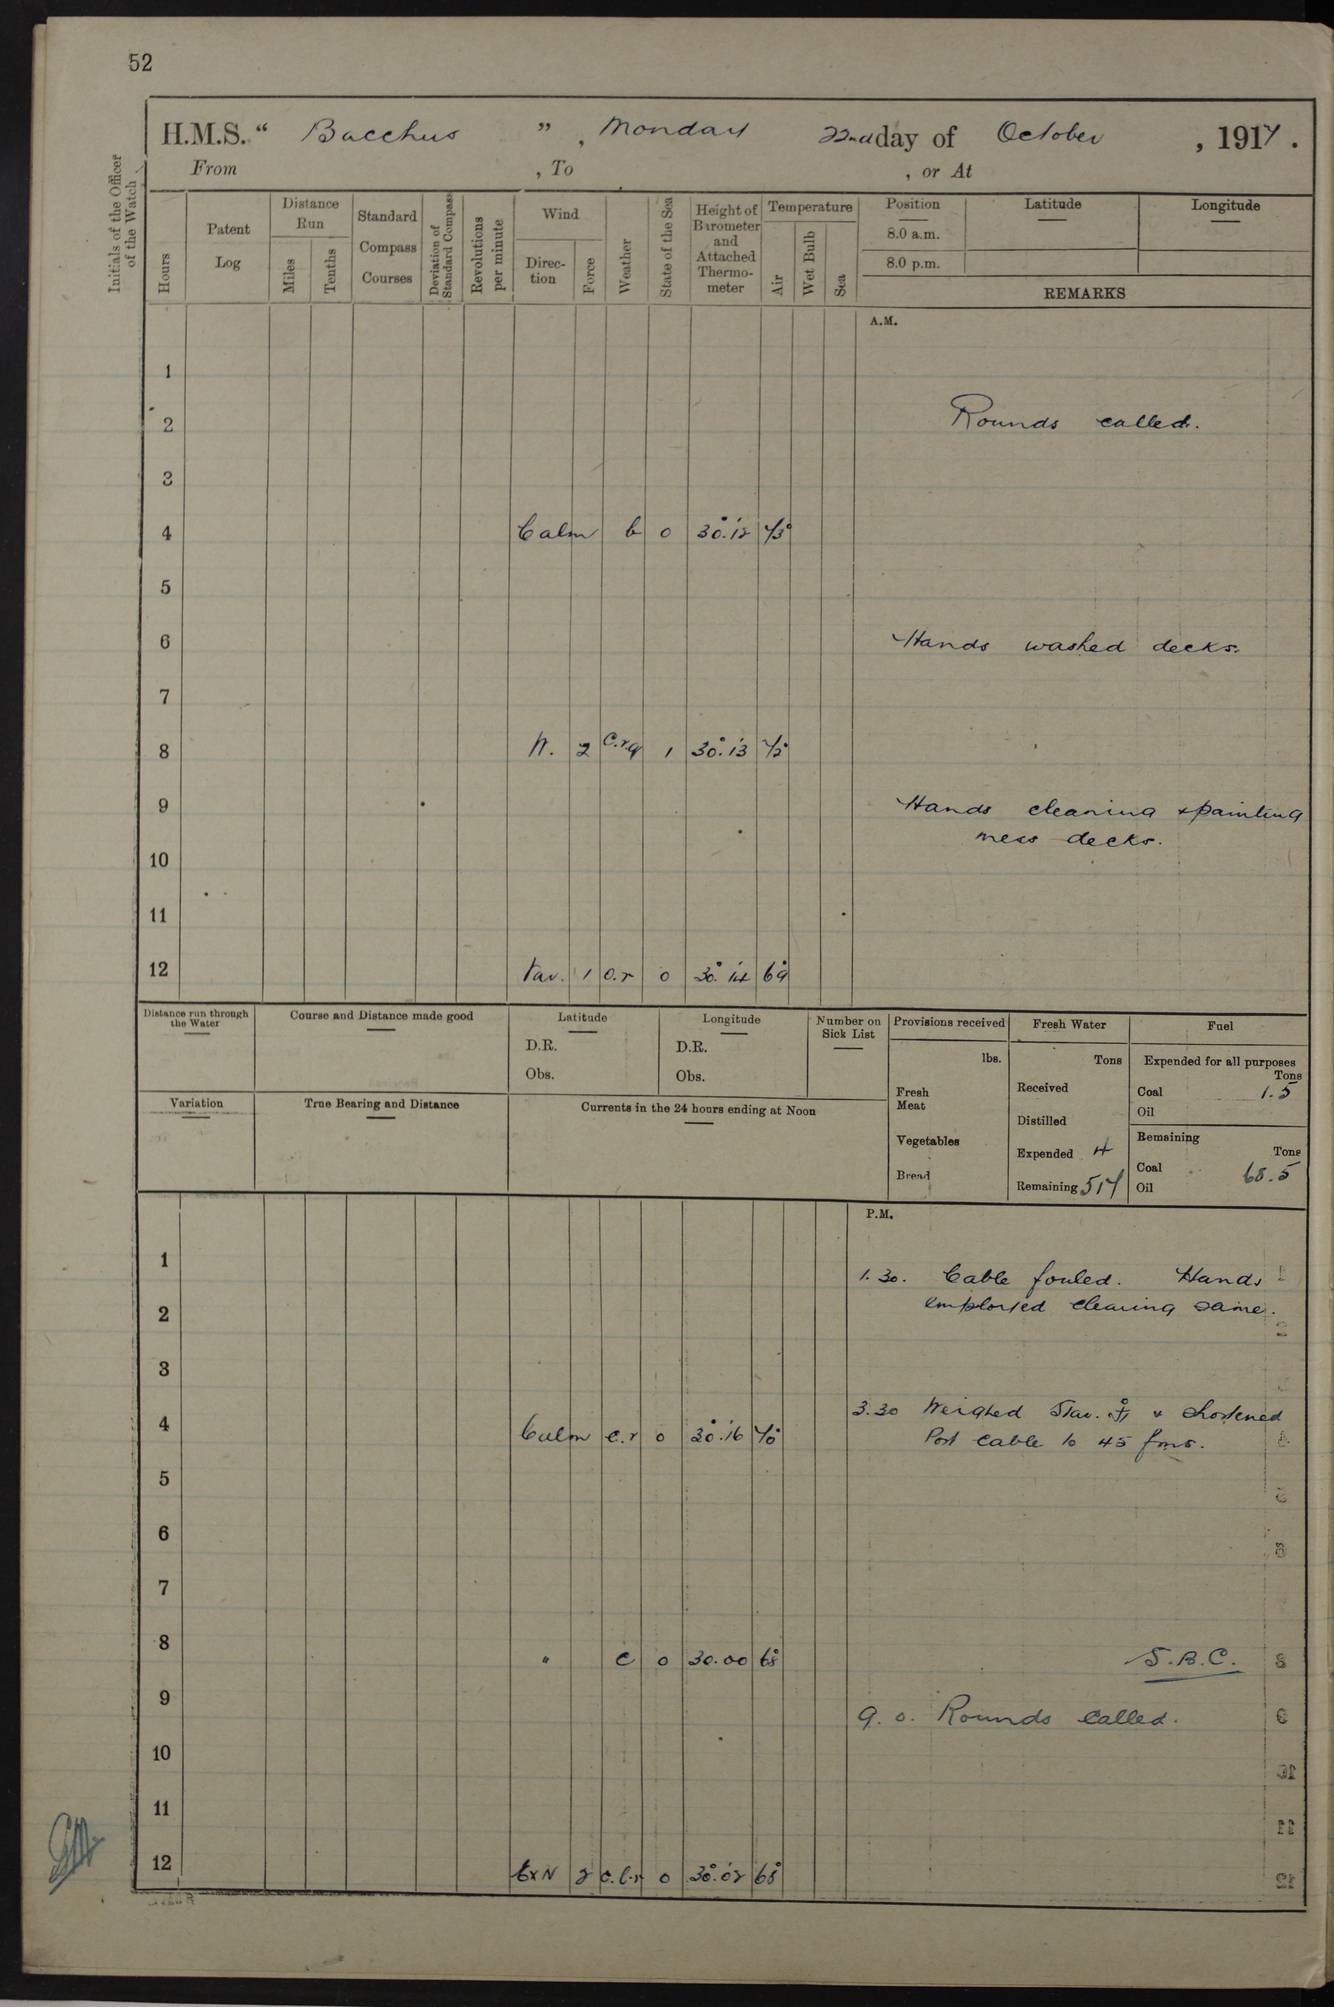 52
H.M.S. " Bacchus ", Monday 22nd day of October, 1917.
From , To , or At
Initials of the Officer of the Watch
Hours
Patent Log
Distance Run
Miles
Tenths
Standard Compass Courses
Deviation of Standard Compass
Revolutions per minute
Wind
Direction
Force
Weather
State of the Sea
Height of Barometer and Attached Thermometer
Temperature
Air
Wet Bulb
Sea
Position
8.0 a.m.
8.0 p.m.
Latitude
Longitude
REMARKS
A.M.
1
2 Rounds called.
3
4 Calm b 0 30.12 73°
5
6 Hands washed decks.
7
8 N. 2 c.r.q 1 30.13 72°
9 Hands cleaning & painting
mess decks.
10
11
12 Var. 1 o.r 0 30.14 69
Distance run through the Water
Course and Distance made good
Latitude
D.R.
Obs.
Longitude
D.R.
Obs.
Number on Sick List
Provisions received
lbs.
Fresh Meat
Vegetables
Bread
Fresh Water
Tons
Received
Distilled
Expended 4
Remaining 517
Fuel
Expended for all purposes
Tons
Coal 1.5
Oil
Remaining
Tons
Coal 68.5
Oil
Variation
True Bearing and Distance
Currents in the 24 hours ending at Noon
P.M.
1
1.30. Cable fouled. Hands
employed clearing same.
2
3
3.30 Weighed Star. ⚓ & shortened
4 Calm c.r 0 30.16 70° Port cable to 45 fms.
5
6
7
8 " c 0 30.00 68° S.B.C.
9
9.0. Rounds called.
10
11
12 ExN 2 c.l.r 0 30.02 68°